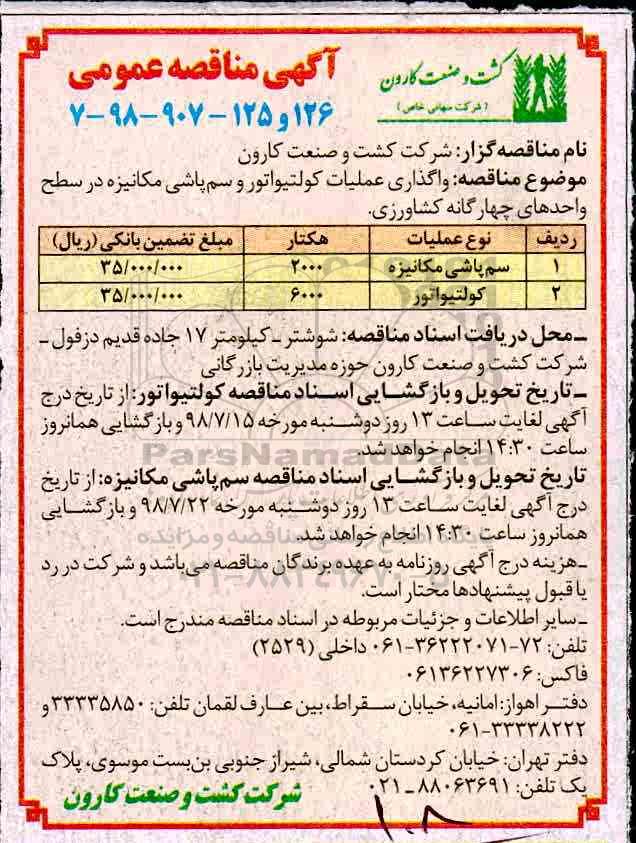 کشت و صنعت کارون
(شرکت سهامی خاص)
آگهی مناقصه عمومی
۱۲۶ و ۱۲۵ – ۹۰۷ – ۹۸ – ۷
نام مناقصه‌گزار: شرکت کشت و صنعت کارون
موضوع مناقصه: واگذاری عملیات کولتیواتور و سم‌پاشی مکانیزه در سطح
واحدهای چهارگانه کشاورزی.
ردیف نوع عملیات هکتار مبلغ تضمین بانکی (ریال)
۱ سم‌پاشی مکانیزه ۲۰۰۰ ۳۵/۰۰۰/۰۰۰
۲ کولتیواتور ۶۰۰۰ ۳۵/۰۰۰/۰۰۰
ـ محل دریافت اسناد مناقصه: شوشتر ـ کیلومتر ۱۷ جاده قدیم دزفول ـ
شرکت کشت و صنعت کارون حوزه مدیریت بازرگانی
ـ تاریخ تحویل و بازگشایی اسناد مناقصه کولتیواتور: از تاریخ درج
آگهی لغایت ساعت ۱۳ روز دوشنبه مورخه ۹۸/۷/۱۵ و بازگشایی همانروز
ساعت ۱۴:۳۰ انجام خواهد شد.
تاریخ تحویل و بازگشایی اسناد مناقصه سم‌پاشی مکانیزه: از تاریخ
درج آگهی لغایت ساعت ۱۳ روز دوشنبه مورخه ۹۸/۷/۲۲ و بازگشایی
همانروز ساعت ۱۴:۳۰ انجام خواهد شد.
ـ هزینه درج آگهی روزنامه به عهده برندگان مناقصه می‌باشد و شرکت در رد
یا قبول پیشنهادها مختار است.
ـ سایر اطلاعات و جزئیات مربوطه در اسناد مناقصه مندرج است.
تلفن: ۷۲-۳۶۲۲۲۰۷۱-۰۶۱ داخلی (۲۵۲۹)
فاکس: ۰۶۱۳۶۲۲۷۳۰۶
دفتر اهواز: امانیه، خیابان سقراط، بین عارف لقمان تلفن: ۳۳۳۳۵۸۵۰ و
۰۶۱-۳۳۳۳۸۲۲۲
دفتر تهران: خیابان کردستان شمالی، شیراز جنوبی بن‌بست موسوی، پلاک
یک تلفن: ۸۸۰۶۳۶۹۱ ـ ۰۲۱
شرکت کشت و صنعت کارون
ParsNamadData
۰۲۱-۸۸۳۴۹۶۷۰-۵
۱۰۸